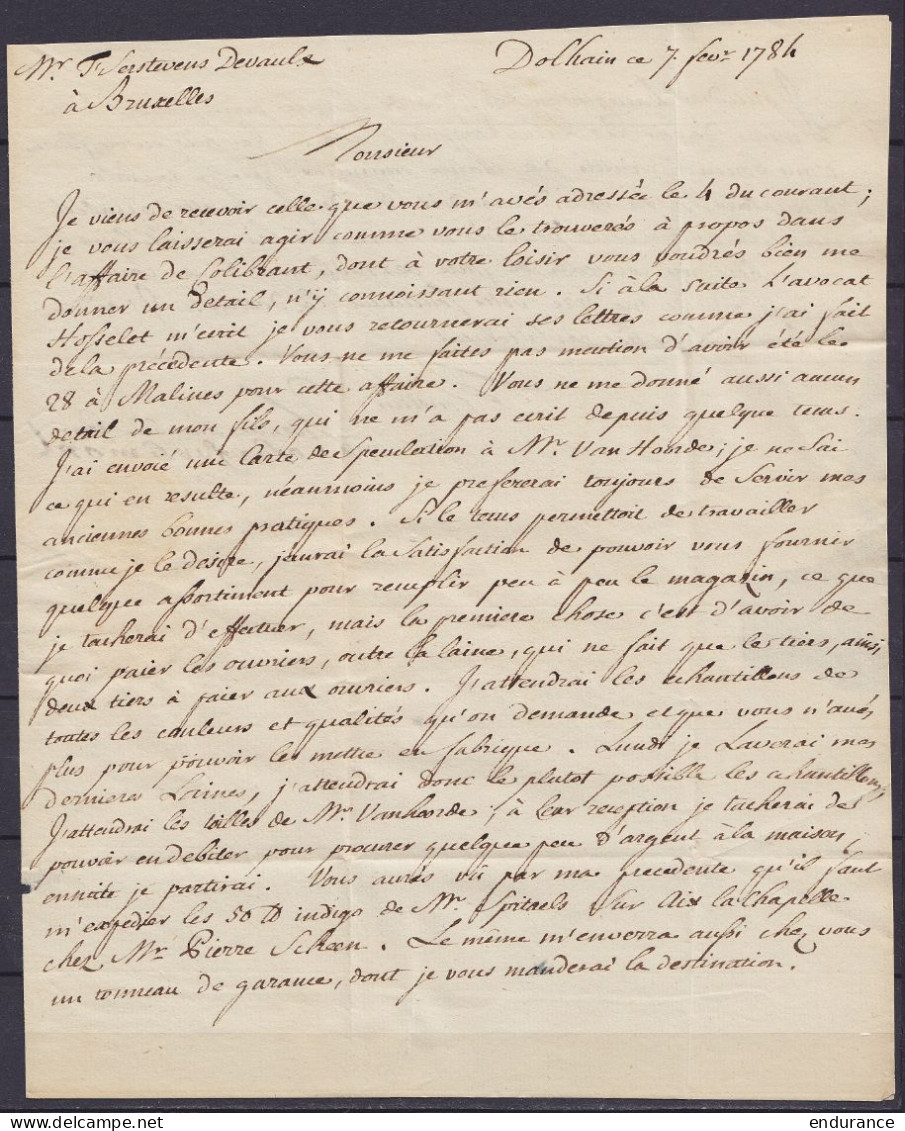 Mr. T'Serstevens Devaulx
Dolhain ce 7 fevr. 1784
à Bruxelles
Monsieur
Je viens de recevoir celle que vous m'avés adressée le 4 du courant ;
je vous laisserai agir comme vous le trouverés à propos dans
l'affaire de Colibrant, dont à votre loisir vous voudrés bien me
donner un detail, n'ÿ connoissant rien. Si à la suite L'avocat
Hosselet m'ecrit je vous retournerai ses lettres comme j'ai fait
de la précédente. Vous ne me faites pas mention d'avoir été le
28 à Malines pour cette affaire. Vous ne me donné aussi aucun
detail de mon fils, qui ne m'a pas ecrit depuis quelque tems.
J'ai envoié une Carte de Speculation à Mr. Van Hoorde ; je ne Sai
ce qui en resulte, néanmoins je prefererai toujours de Servir mes
anciennes bonnes pratiques. Si le tems permettoit de travailler
comme je le desire, j'aurai la Satisfaction de pouvoir vous fournir
quelque assortiment pour remplir peu à peu le magazin, ce que
je tacherai d'effectuer, mais la premiere chose c'est d'avoir de
quoi paier les ouvriers, outre la laine, qui ne fait que le tiers, ainsi
deux tiers à paier aux ouvriers. J'attendrai les echantillons de
toutes les couleurs et qualités qu'on demande et que vous n'avés
plus pour pouvoir les mettre en fabrique. Lundi je Laverai mes
dernieres Laines, j'attendrai donc le plutot possible les echantillons
J'attendrai les tailles de Mr. Vanhoorde, à leur reception je tacherai de
pouvoir en debiter pour procurer quelque peu d'argent à la maison,
ensuite je partirai. Vous aurés vû par ma precedente qu'il faut
m'expedier les 50 lb indigo de Mr. Spitaels sur Aix la Chapelle
chez Mr. Pierre Scheen. Le même m'enverra aussi chez vous
un tonneau de garance, dont je vous manderai la destination.
delcampe.net
endurance